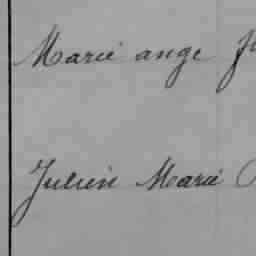 Marie ange
Julien Marie